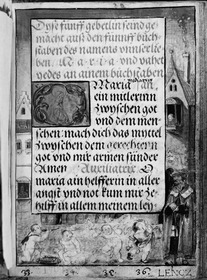 Dyse fünff gebetlin seind ge
macht auß den fünnff büch
staben des namens vnnser lie
ben Maria vnd vahet
yedes an ainem büchstaben
Maria an
ein mitlerin
zwyschen got
vnd dem men
schen: mach dich das myttel
zwyschen dem gerechten
got vnd mir armen sünder
Amen Auxiliatrix O
maria ain helfferin in aller
angst vnd not kum mir ze
hilf in allem meinem ley
36
LENCZ